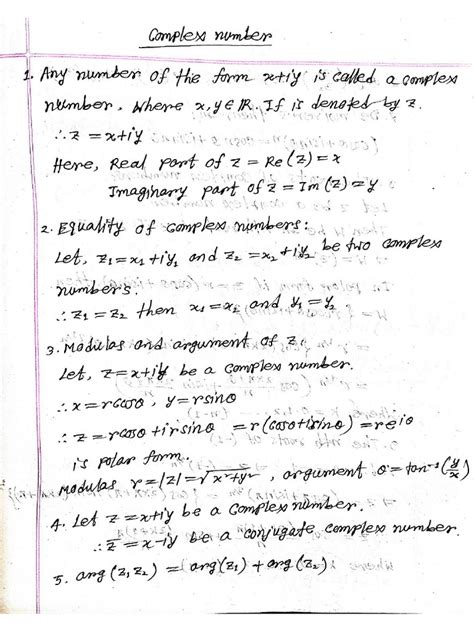 Complex number
1. Any number of the form x+iy is called a complex
number, where x, y ∈ ℝ. If is denoted by z.
∴ z = x+iy
Here, Real part of z = Re(z) = x
Imaginary part of z = Im(z) = y
2. Equality of complex numbers:
Let, z₁ = x₁ + iy₁ and z₂ = x₂ + iy₂ be two complex
numbers.
∴ z₁ = z₂ then x₁ = x₂ and y₁ = y₂
3. Modulas and argument of z:
Let, z = x+iy be a complex number.
∴ x = rcosθ, y = rsinθ
∴ z = rcosθ + irsinθ = r(cosθ+isinθ) = re^iθ
is polar form.
Modulas r = |z| = √x²+y², argument θ = tan⁻¹(y/x)
4. Let z = x+iy be a complex number.
∴ z̅ = x-iy be a conjugate complex number.
5. arg(z₁z₂) = arg(z₁) + arg(z₂)